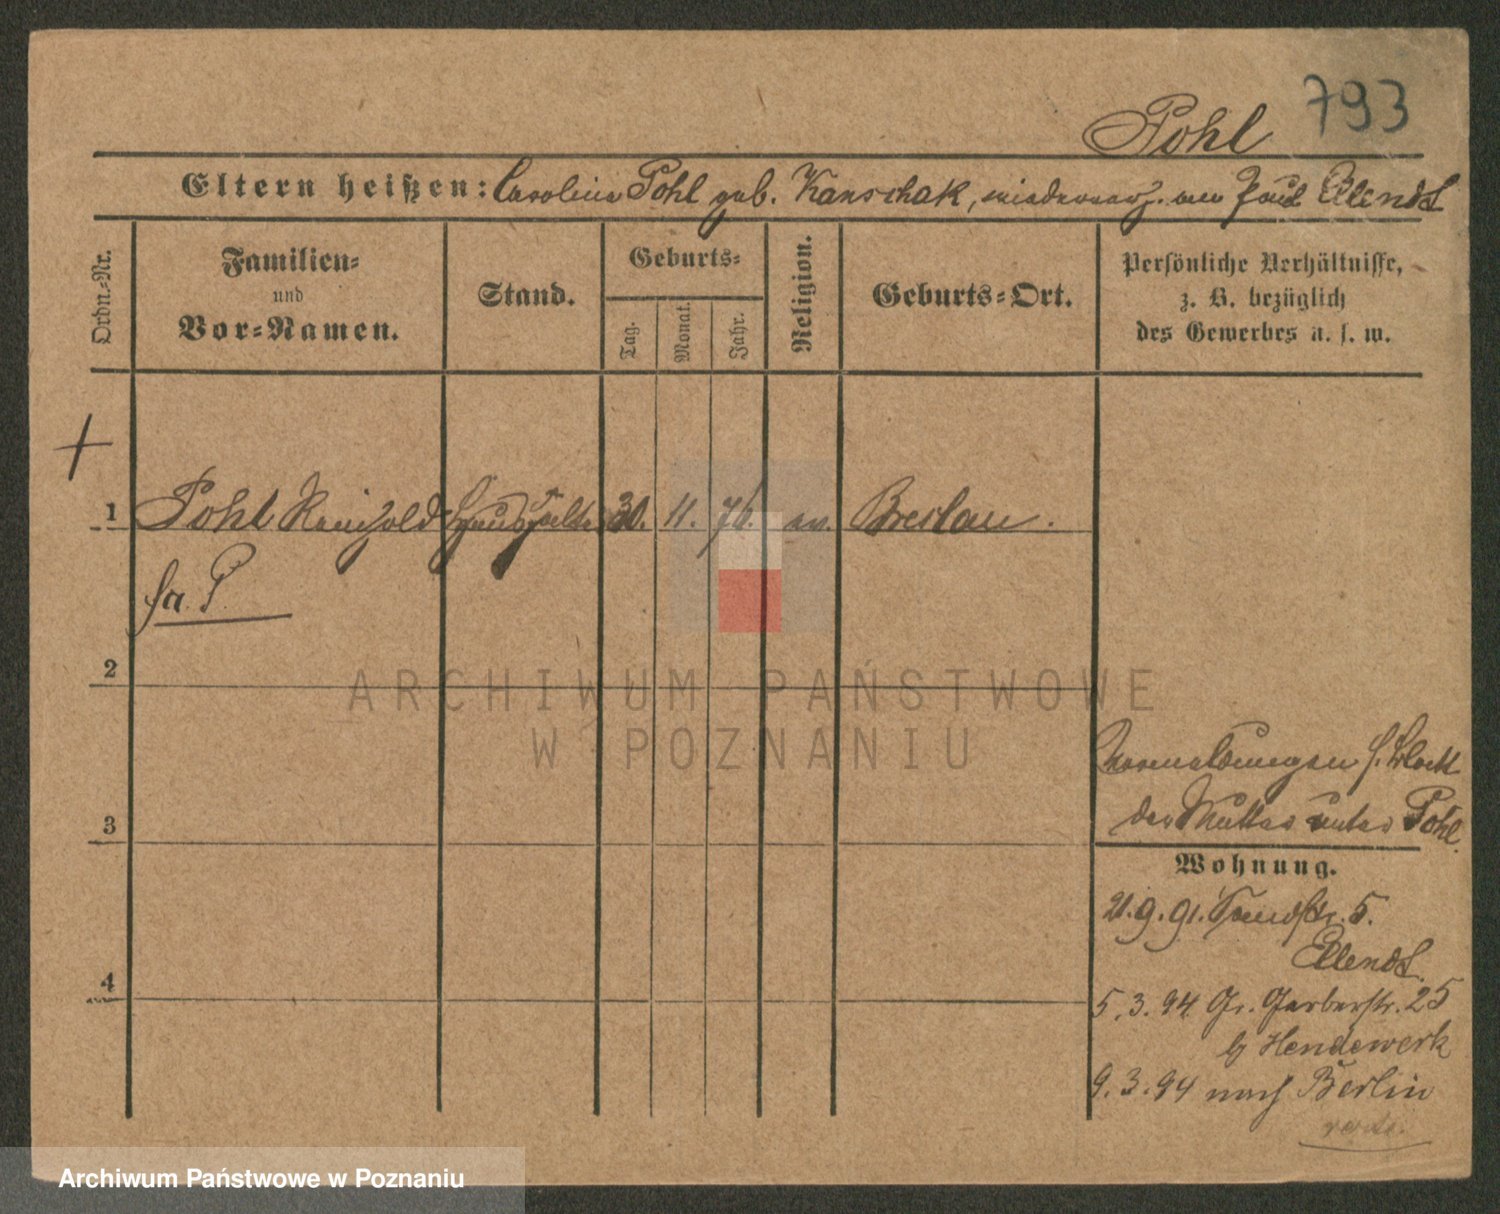 793
Pohl
Eltern heißen: Carolina Pohl geb. Kanschak, wiederverh. an Paul Ellendt
Ordn.-Nr.
Familien-
und
Vor-Namen.
Stand.
Geburts-
Tag.
Monat.
Jahr.
Religion.
Geburts-Ort.
Persönliche Verhältnisse,
z. B. bezüglich
des Gewerbes u. s. w.
1 Pohl Reinhold 30. 11. 76. ev. Breslau.
fa. P.
2
3
4
der Mutter unter Pohl.
Wohnung.
21.9.91. 5.
Ellendt.
5.3.94 Gr. Gerberstr. 25
b/ Hendewerk
9.3.94 nach Berlin
ARCHIWUM PAŃSTWOWE
W POZNANIU
Archiwum Państwowe w Poznaniu